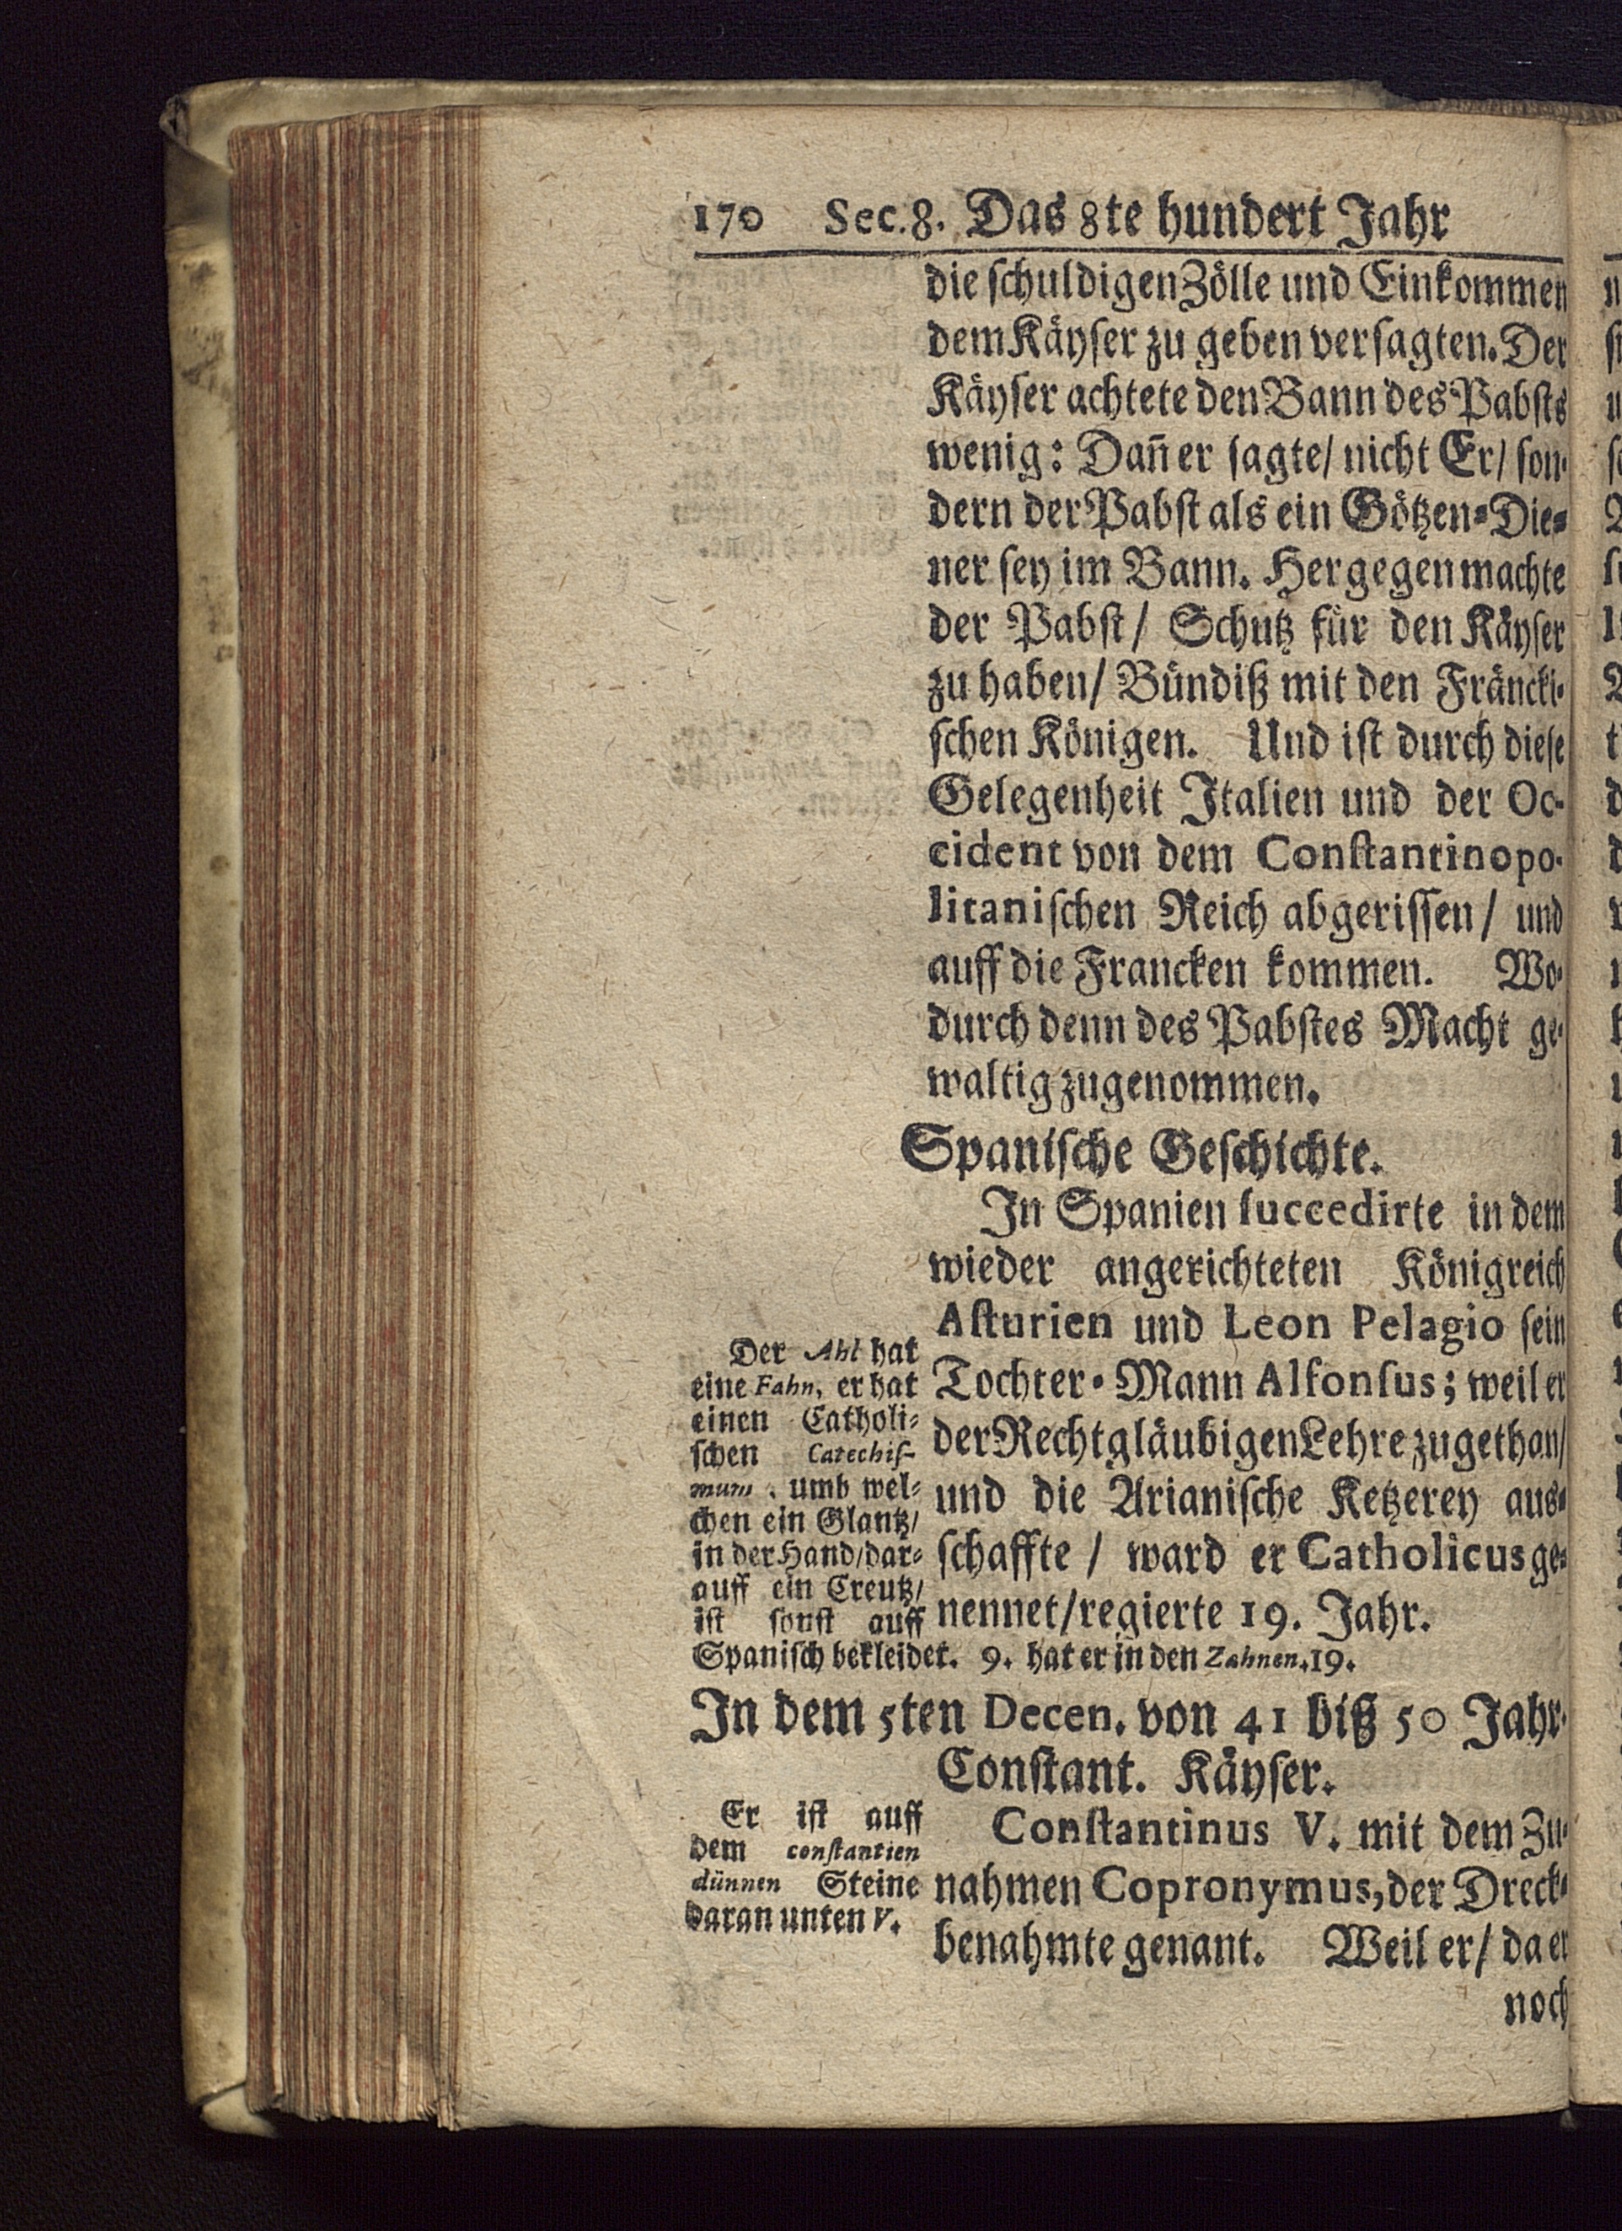 170 Sec. 8. Das 8te hundert Jahr
die schuldigen Zölle und Einkommen
dem Käyser zu geben versagten. Der
Käyser achtete den Bann des Pabsts
wenig: Dañ er sagte/ nicht Er/ son-
dern der Pabst als ein Götzen-Die-
ner sey im Bann. Hergegen machte
der Pabst/ Schutz für den Käyser
zu haben/ Bündiß mit den Fräncki-
schen Königen. Und ist durch diese
Gelegenheit Italien und der Oc-
cident von dem Constantinopo-
litanischen Reich abgerissen/ und
auff die Francken kommen. Wo-
durch denn des Pabstes Macht ge-
waltig zugenommen.
Spanische Geschichte.
In Spanien succedirte in dem
wieder angerichteten Königreich
Asturien und Leon Pelagio sein
Tochter-Mann Alfonsus; weil er
der Rechtgläubigen Lehre zugethan/
und die Arianische Ketzerey aus-
schaffte / ward er Catholicus ge-
nennet/ regierte 19. Jahr.
Der Ahl hat
eine Fahn, er hat
einen Catholi-
schen Catechis-
mum, umb wel-
chen ein Glantz/
in der Hand/ dar-
auff ein Creutz/
ist sonst auff
Spanisch bekleidet. 9. hat er in den Zahnen. 19.
In dem 5ten Decen. von 41 biß 50 Jahr.
Constant. Käyser.
Er ist auff
dem constantien
dünnen Steine
daran unten V.
Constantinus V. mit dem Zu-
nahmen Copronymus, der Dreck-
benahmte genant. Weil er/ da er
noch